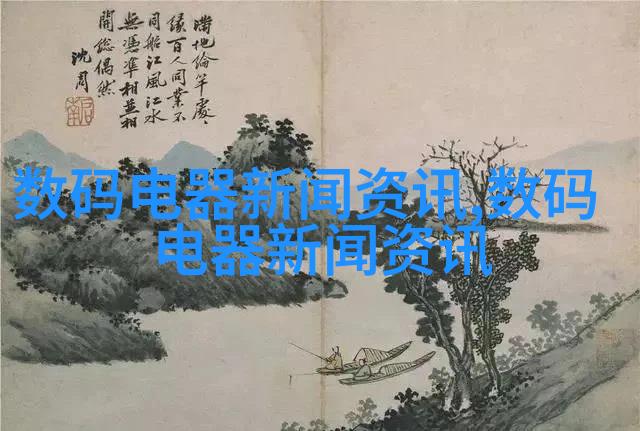 滿地綸竿處〻
緣百人同業不
同船江風江水
無憑準相並相
開總偶然
沈周
数码电器新闻资讯,数码
电器新闻资讯